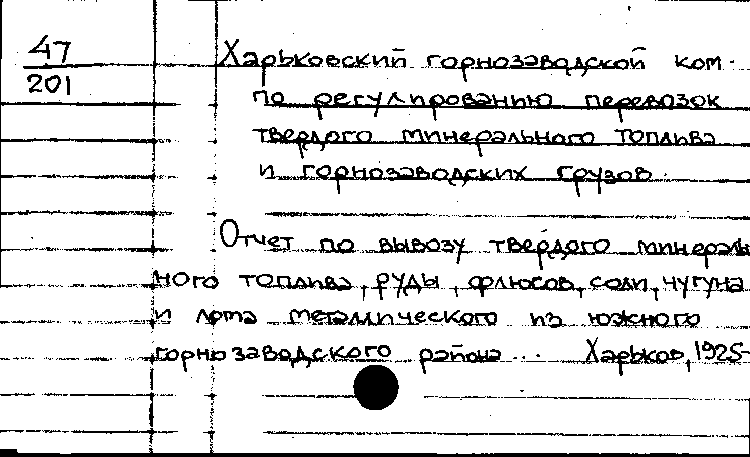 47
201
Харьковский горнозаводской ком.
по регулированию перевозок
твердого минерального топлива
и горнозаводских грузов.
Отчет по вывозу твердого минераль
ного топлива, руды, флюсов, соли, чугуна
и лома металлического из южного
горнозаводского района... Харьков, 1925